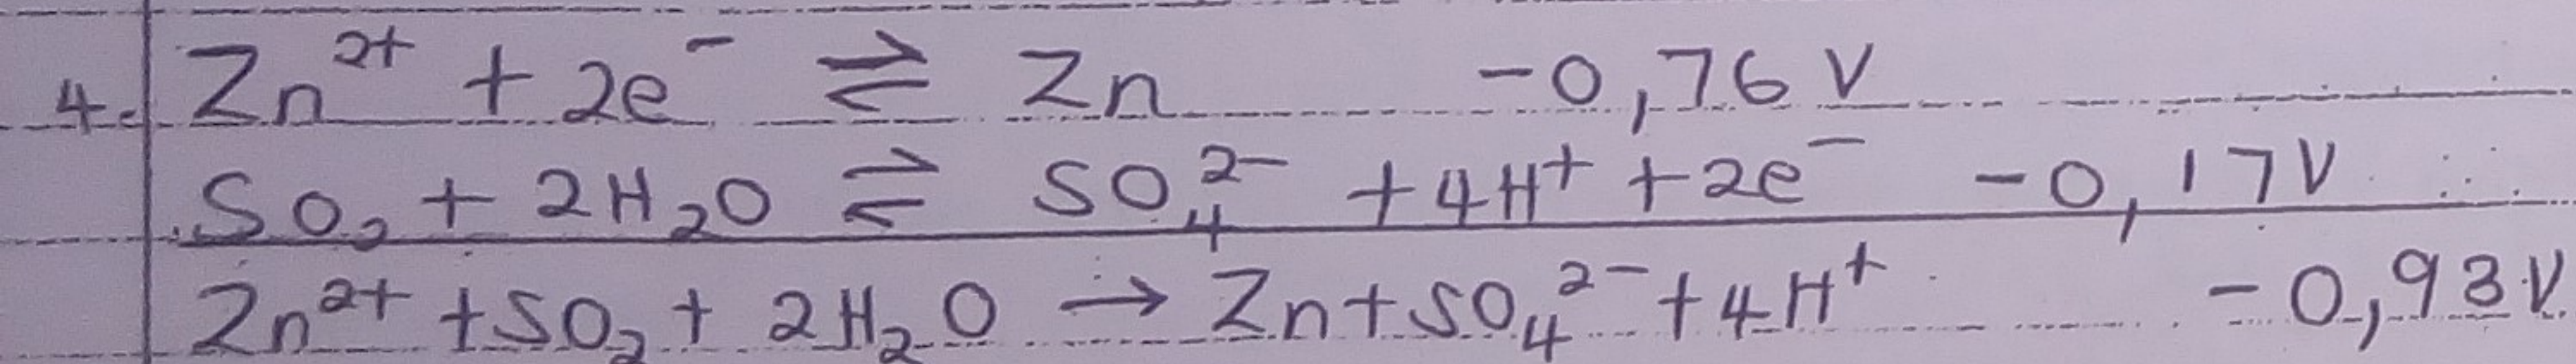 4. Zn²⁺ + 2e⁻ ⇌ Zn -0,76 V
SO₂ + 2H₂O ⇌ SO₄²⁻ + 4H⁺ + 2e⁻ -0,17V
Zn²⁺ + SO₂ + 2H₂O → Zn + SO₄²⁻ + 4H⁺ -0,93V